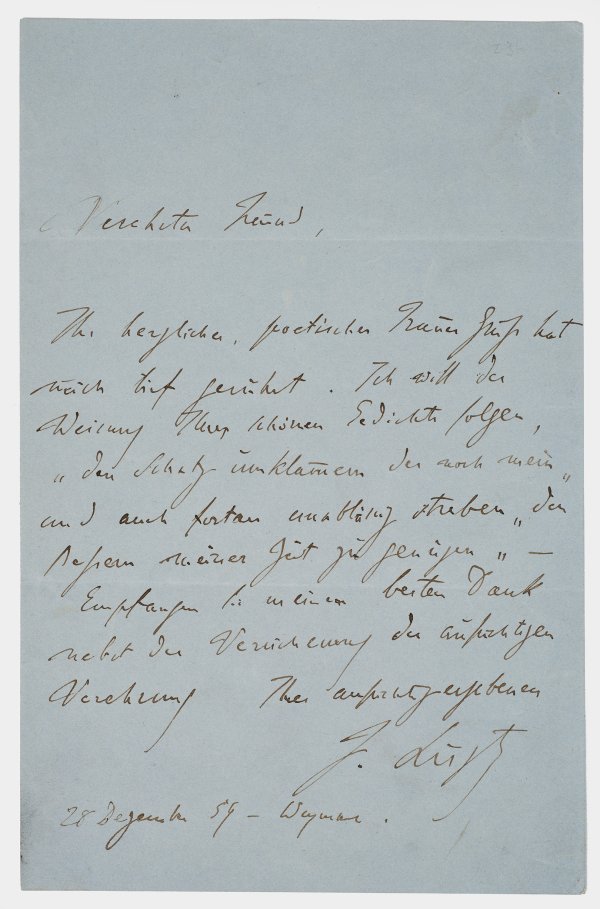 Verehrter Freund,
Ihr herzlicher, poetischer Trauer Gruß hat
mich tief gerührt. Ich will der
Weisung Ihres schönen Gedichts folgen,
„den Schatz umklamern der noch mein„
und auch fortan unablässig streben „den
Bessern meiner Zeit zu genügen„ —
Empfangen Sie meinen besten Dank
nebst der Versicherung der aufrichtigen
Verehrung Ihres ergebenen
F. Liszt
28 Dezember 59 – Weymar.